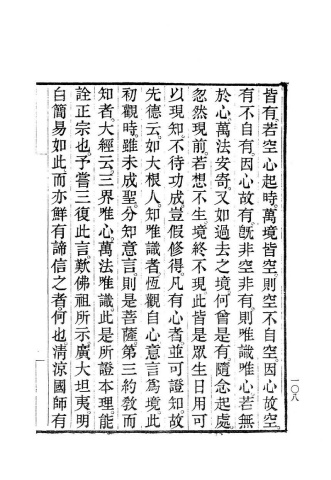 皆有。若空心起時。萬境皆空。則空不自空。因心故空。
有不自有。因心故有。旣非空非有。則唯識唯心。若無
於心。萬法安寄。又如過去之境。何曾是有。隨念起處。
忽然現前。若想不生。境終不現。此皆是眾生日用可
以現知。不待功成。豈假修得。凡有心者。並可證知。故
先德云。如大根人。知唯識者。恆觀自心意言爲境。此
初觀時。雖未成聖。分知意言。則是菩薩。第三約敎而
知者。大經云。三界唯心。萬法唯識。此是所證本理。能
詮正宗也。予嘗三復此言。歎佛祖所示廣大坦夷。明
白簡易如此。而亦鮮有諦信之者何也。淸涼國師有
一〇八